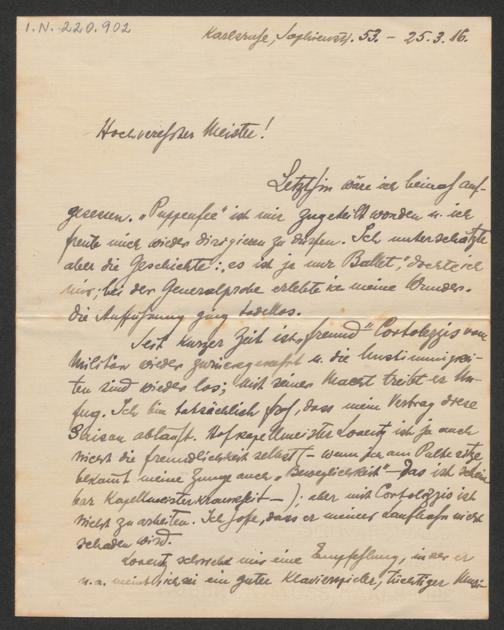 I.N. 220.902
Karlsruhe, Sophienstr. 53. – 25.3.16.
Hochverehrter Meister!
Letzthin wäre ich beinah auf-
gesessen. „Puppenfee" ist mir zugeteilt worden u. ich
freute mich wieder dirigieren zu dürfen. Ich unterschätzte
aber die Geschichte: „es ist ja nur Ballet", dachte ich
mir; bei der Generalprobe erlebte ich meine Wunder.
Die Aufführung ging tadellos.
Seit kurzer Zeit ist „Freund" Cortolezzis vom
Militär wieder zurückgekehrt u. die Unstimmigkei-
ten sind wieder los; mit seiner Macht treibt er Un-
fug. Ich bin tatsächlich froh, dass mein Vertrag diese
Saison abläuft. Hofkapellmeister Lorentz ist ja auch
nicht die Freundlichkeit selbst (– wenn ich am Pulte sitze
bekommt meine Zunge auch „Beweglichkeit" – das ist schein-
bar Kapellmeisterkrankheit –); aber mit Cortolezzis ist
nicht zu arbeiten. Ich hoffe, dass er meiner Laufbahn nicht
schaden wird.
Lorentz schreibt mir eine Empfehlung, in der er
u. a. meint ich sei ein guter Klavierspieler, tüchtiger Musi-